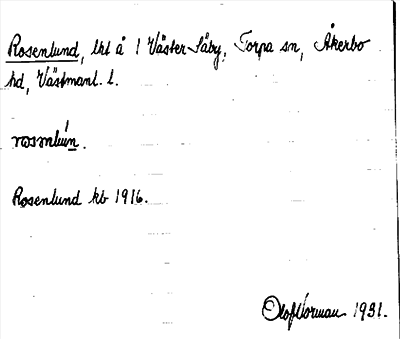 Rosenlund, lht å 1 Väster-Såby, Torpa sn, Åkerbo
hd, Västmanl. l.
Rosenlund kb 1916.
Olof Norman 1931.